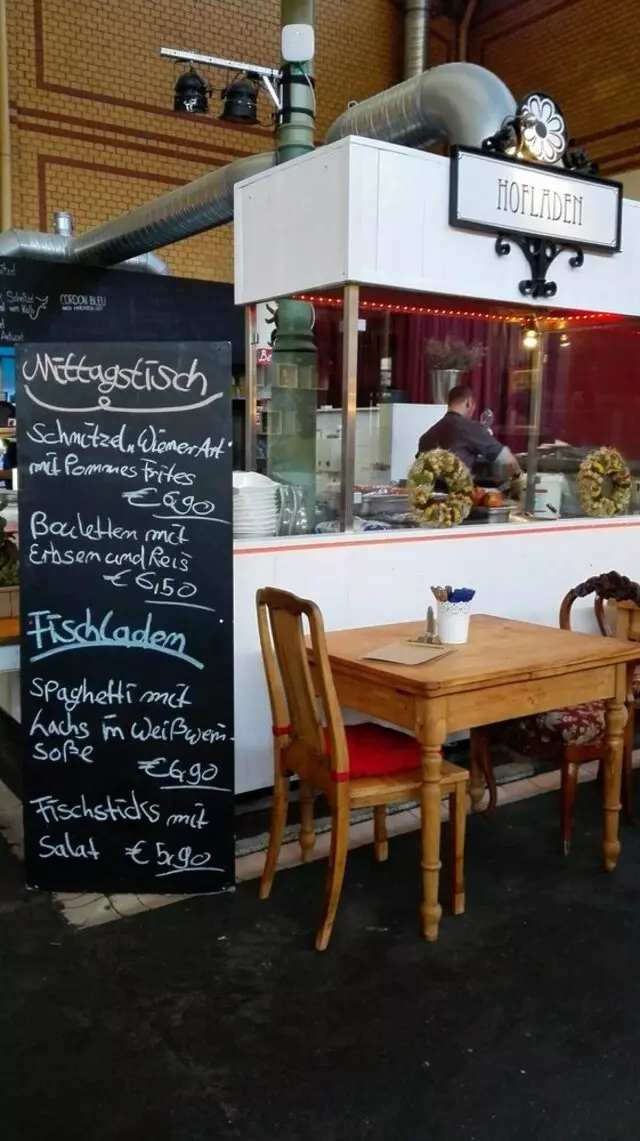 HOFLADEN
, Schnitzel
CORDON BLEU
Mittagstisch
Schnitzel „Wiener Art"
mit Pommes Frites
€ 6,90
Bouletten mit
Erbsen und Reis
€ 6,50
Fischladen
Spaghetti mit
Lachs in Weißwein-
soße
€ 6,90
Fischsticks mit
Salat € 5,90